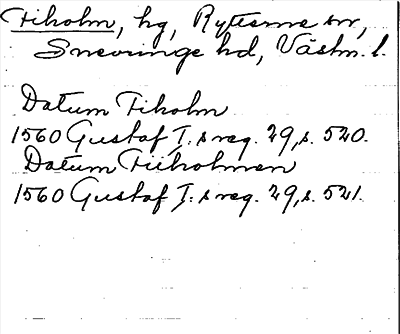 Fiholm, hg, Rytterne sn,
Snevringe hd, Västm. l.
Datum Fiholm
1560 Gustaf I:s reg. 29, s. 520.
Datum Fiiholmen
1560 Gustaf I:s reg. 29, s. 521.